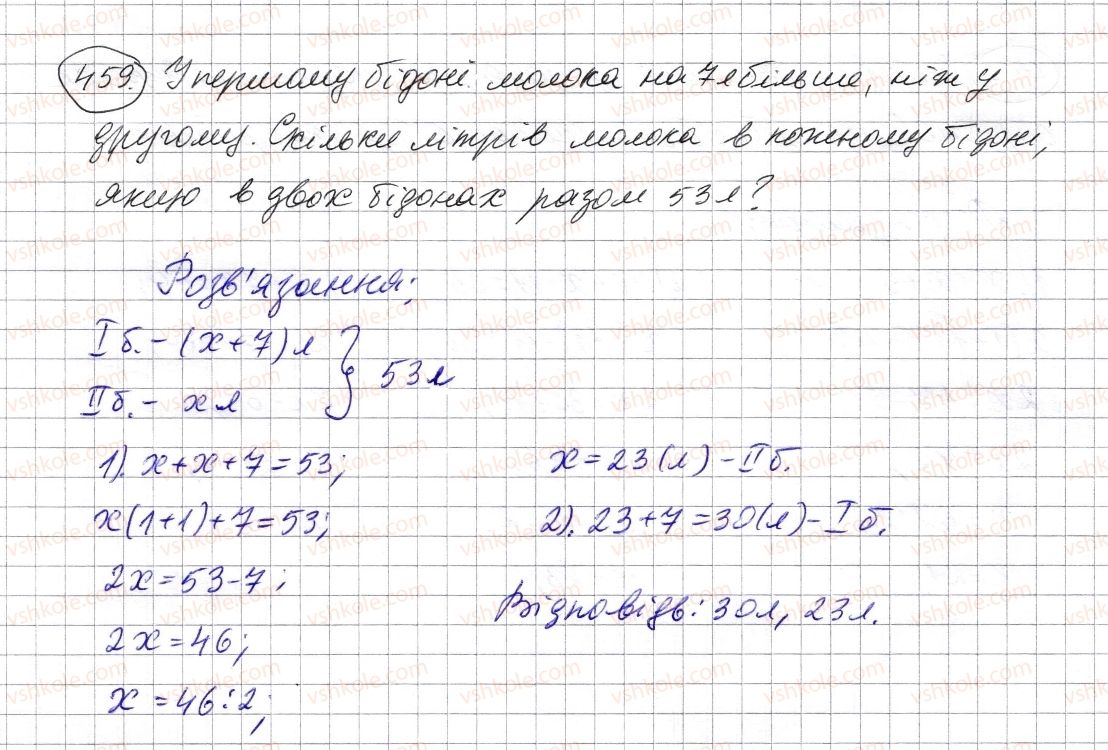 459. У першому бідоні молока на 7л більше, ніж у
другому. Скільки літрів молока в кожному бідоні,
якщо в двох бідонах разом 53л?
Розв'язання:
I б. - (x+7) л } 53л
II б. - x л
1). x+x+7=53;
x(1+1)+7=53;
2x=53-7;
2x=46;
x=46:2;
x=23(л) - II б.
2). 23+7=30(л) - I б.
Відповідь: 30л, 23л.
vshkole.com